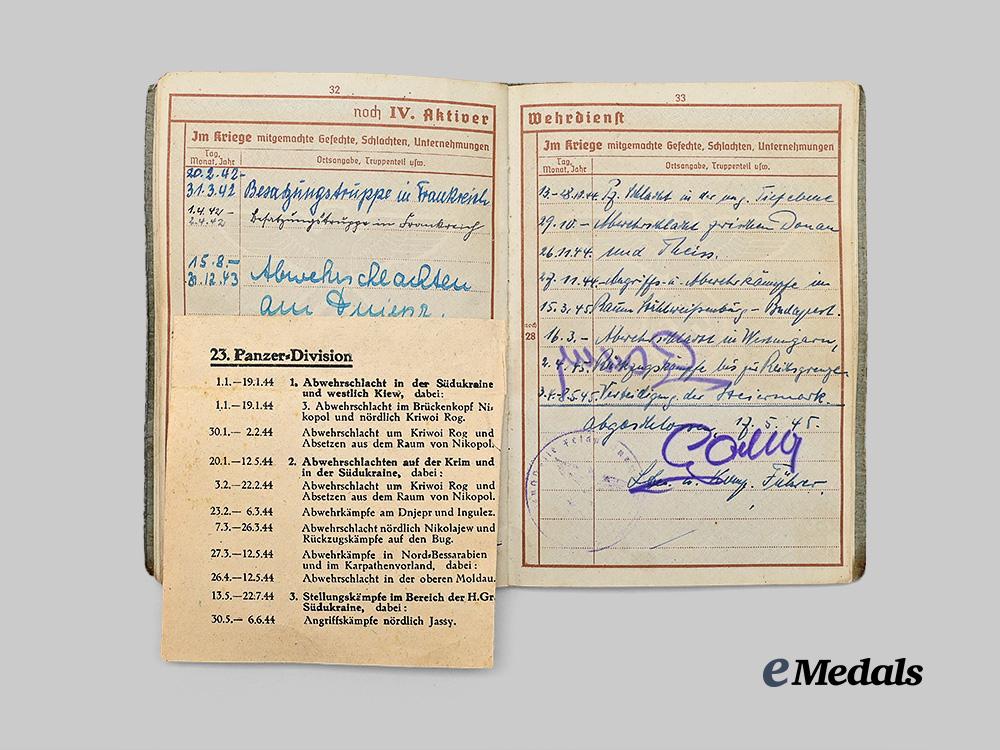 32
noch IV. Aktiver
Im Kriege mitgemachte Gefechte, Schlachten, Unternehmungen
Tag, Monat, Jahr
Ortsangabe, Truppenteil usw.
20.2.42-
31.3.42 Besatzungstruppe in Frankreich
1.4.42-
2.4.42 Besatzungstruppe in Frankreich
15.8.-
31.12.43 Abwehrschlachten
am Dnjepr.
23. Panzer-Division
1.1.—19.1.44 1. Abwehrschlacht in der Südukraine
und westlich Kiew, dabei:
1.1.—19.1.44 3. Abwehrschlacht im Brückenkopf Ni-
kopol und nördlich Kriwoi Rog.
30.1.— 2.2.44 Abwehrschlacht um Kriwoi Rog und
Absetzen aus dem Raum von Nikopol.
20.1.—12.5.44 2. Abwehrschlachten auf der Krim und
in der Südukraine, dabei:
3.2.—22.2.44 Abwehrschlacht um Kriwoi Rog und
Absetzen aus dem Raum von Nikopol.
23.2.— 6.3.44 Abwehrkämpfe am Dnjepr und Ingulez.
7.3.—26.3.44 Abwehrschlacht nördlich Nikolajew und
Rückzugskämpfe auf den Bug.
27.3.—12.5.44 Abwehrkämpfe in Nord-Bessarabien
und im Karpathenvorland, dabei:
26.4.—12.5.44 Abwehrschlacht in der oberen Moldau.
13.5.—22.7.44 3. Stellungskämpfe im Bereich der H.Gr.
Südukraine, dabei:
30.5.— 6.6.44 Angriffskämpfe nördlich Jassy.
33
Wehrdienst
Im Kriege mitgemachte Gefechte, Schlachten, Unternehmungen
Tag, Monat, Jahr
Ortsangabe, Truppenteil usw.
Pz. Schlacht in der ung. Tiefebene
29.10.- Abwehrschlacht zwischen Donau
26.11.44. und Theiss.
27.11.44- Angriffs- u. Abwehrkämpfe im
15.3.45 Raum Stuhlweißenburg - Budapest.
noch
28
16.3.- Abwehrschlacht in Westungarn,
2.4.45. Rückzugskämpfe bis zur Reichsgrenze
3.4.-8.5.45. Verteidigung der Steiermark.
abgeschlossen, 17.5.45.
u. Komp. Führer.
eMedals